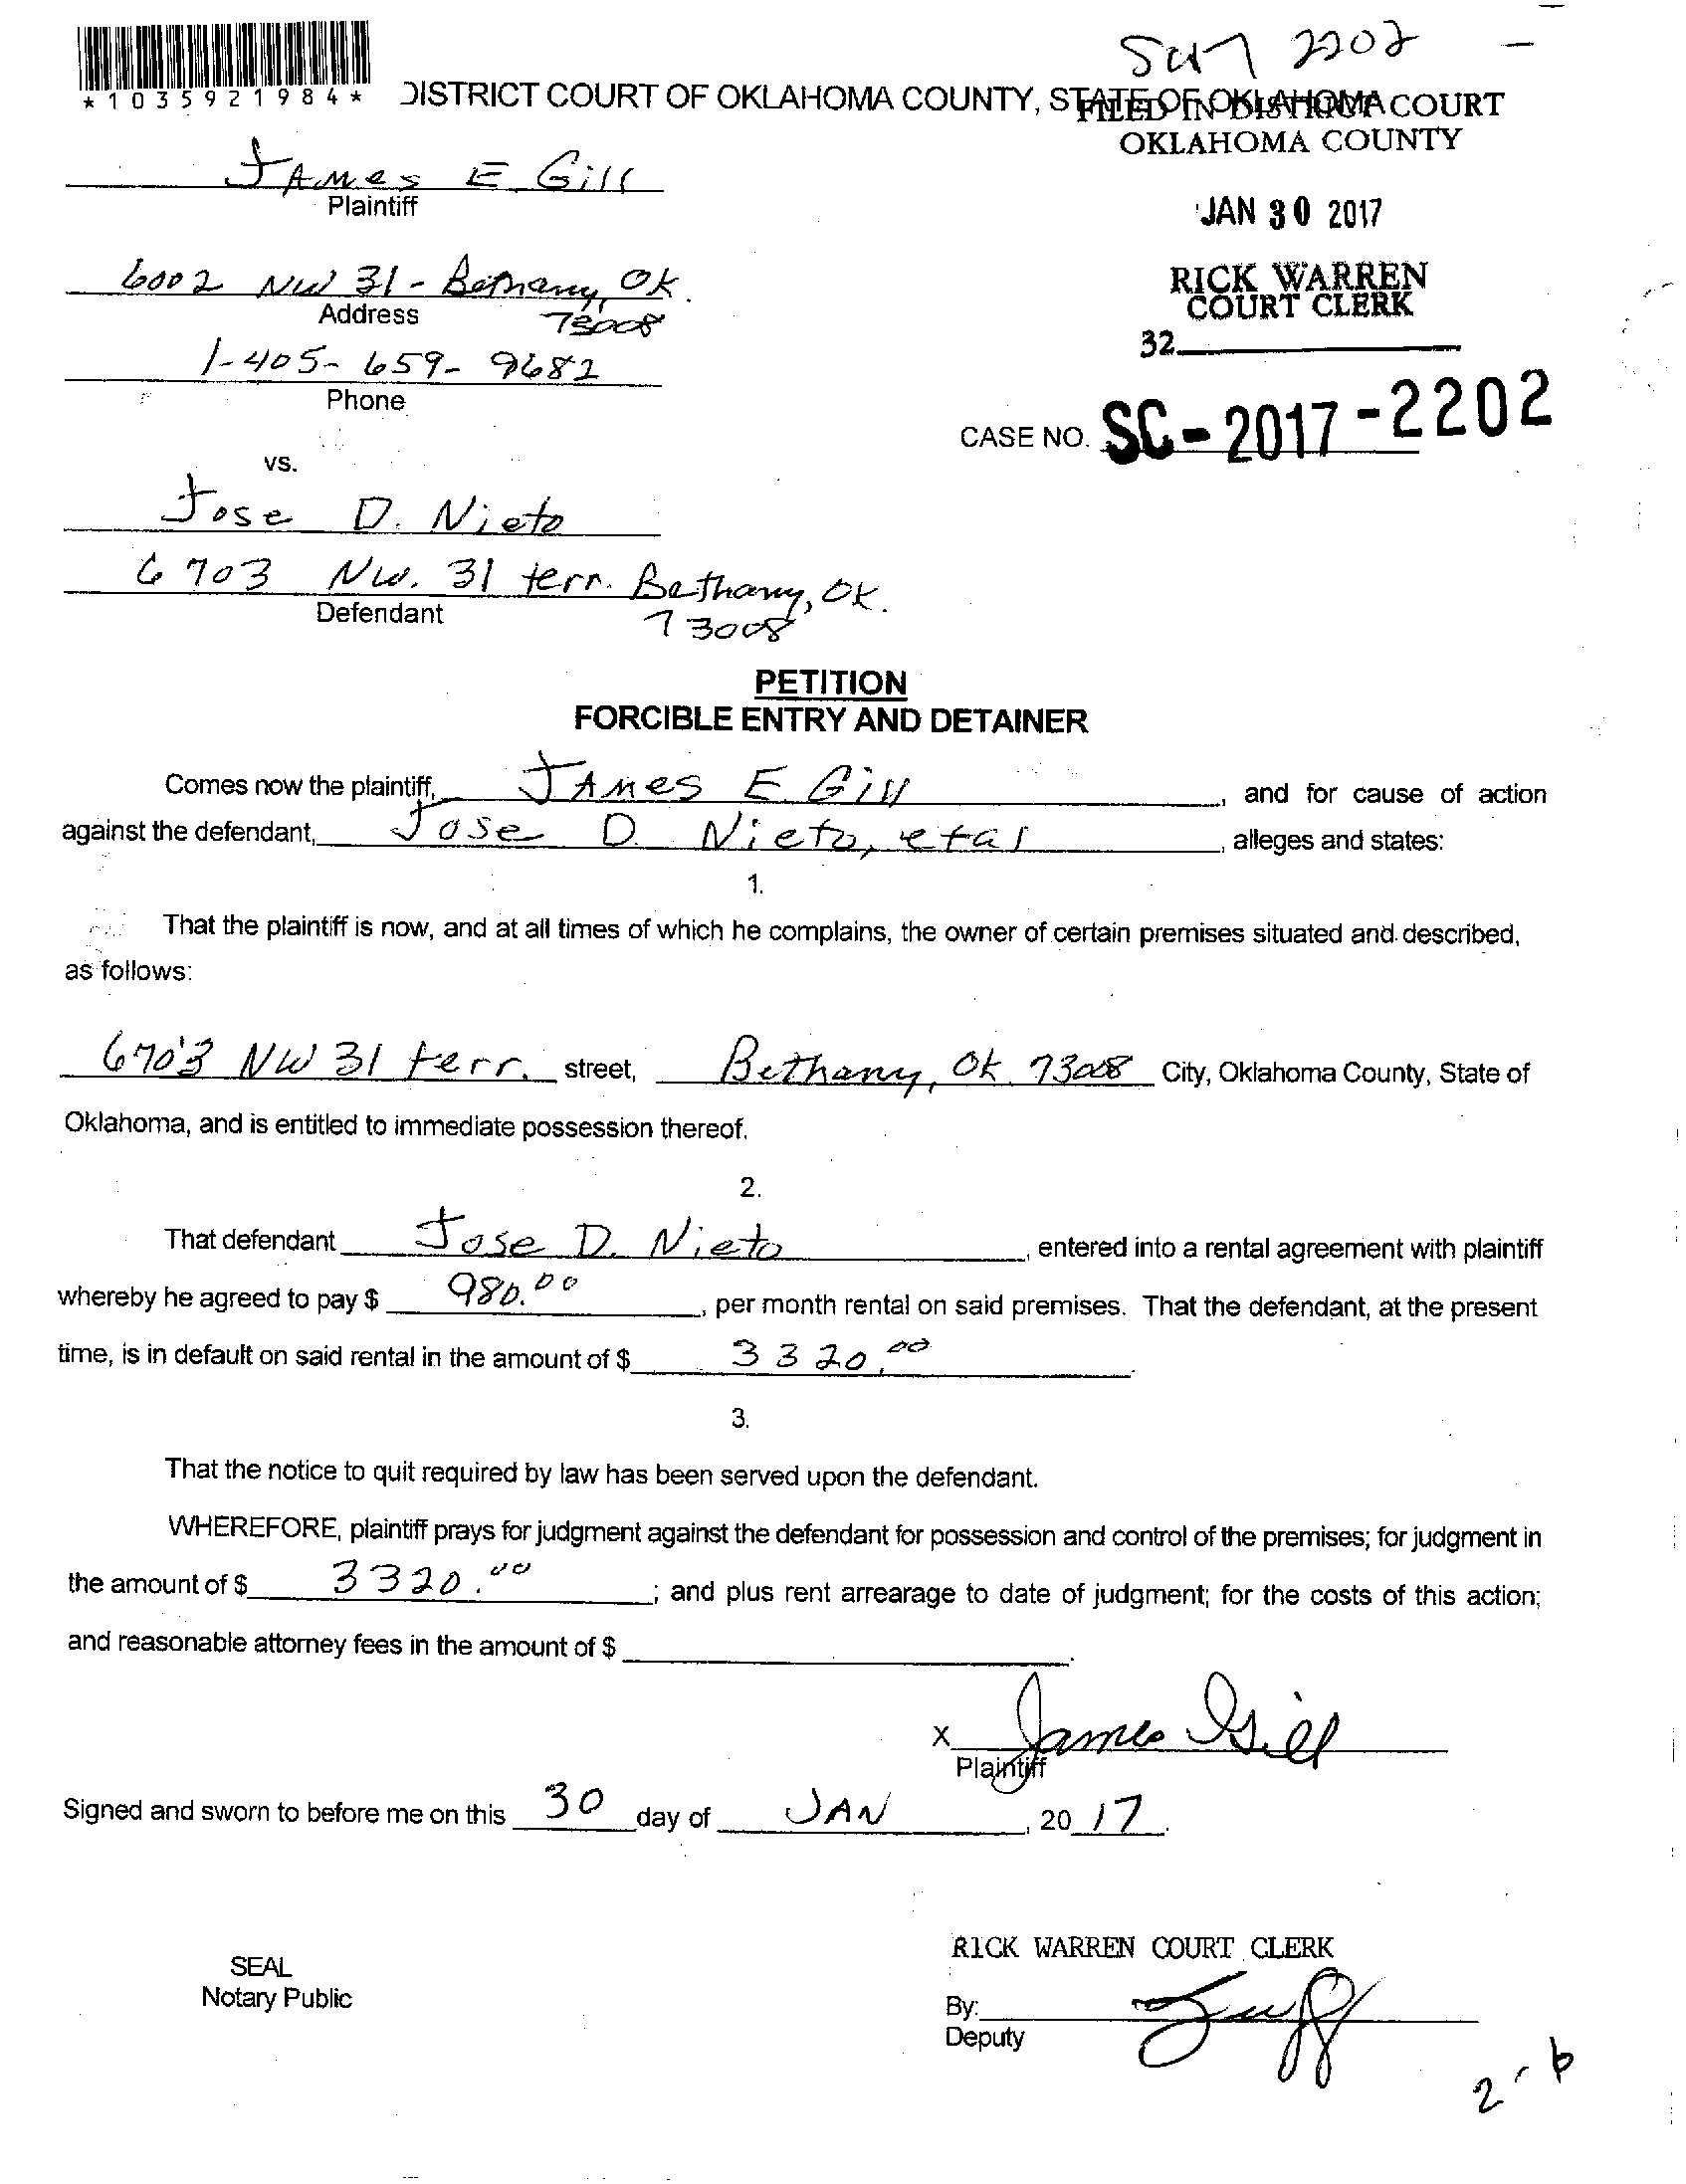 SC17 2202
*1035921984*
DISTRICT COURT OF OKLAHOMA COUNTY, STATE OF OKLAHOMA
FILED IN DISTRICT COURT
OKLAHOMA COUNTY
JAMes E Gill
Plaintiff
JAN 30 2017
6002 NW 31 - Bethany, OK.
Address
73008
RICK WARREN
COURT CLERK
32
1-405-659-9682
Phone
CASE NO. SC-2017-2202
vs.
Jose D. Nieto
6703 NW. 31 terr. Bethany, OK.
Defendant
73008
PETITION
FORCIBLE ENTRY AND DETAINER
Comes now the plaintiff, JAMes E Gill, and for cause of action
against the defendant, Jose D. Nieto, etal, alleges and states:
1.
That the plaintiff is now, and at all times of which he complains, the owner of certain premises situated and described,
as follows:
6703 NW 31 terr. street, Bethany, OK 73008 City, Oklahoma County, State of
Oklahoma, and is entitled to immediate possession thereof.
2.
That defendant Jose D. Nieto, entered into a rental agreement with plaintiff
whereby he agreed to pay $ 980.00, per month rental on said premises. That the defendant, at the present
time, is in default on said rental in the amount of $ 3320.00
3.
That the notice to quit required by law has been served upon the defendant.
WHEREFORE, plaintiff prays for judgment against the defendant for possession and control of the premises; for judgment in
the amount of $ 3320.00; and plus rent arrearage to date of judgment; for the costs of this action;
and reasonable attorney fees in the amount of $ .
X James Gill
Plaintiff
Signed and sworn to before me on this 30 day of JAN, 2017.
RICK WARREN COURT CLERK
SEAL
Notary Public
By:
Deputy
2-6